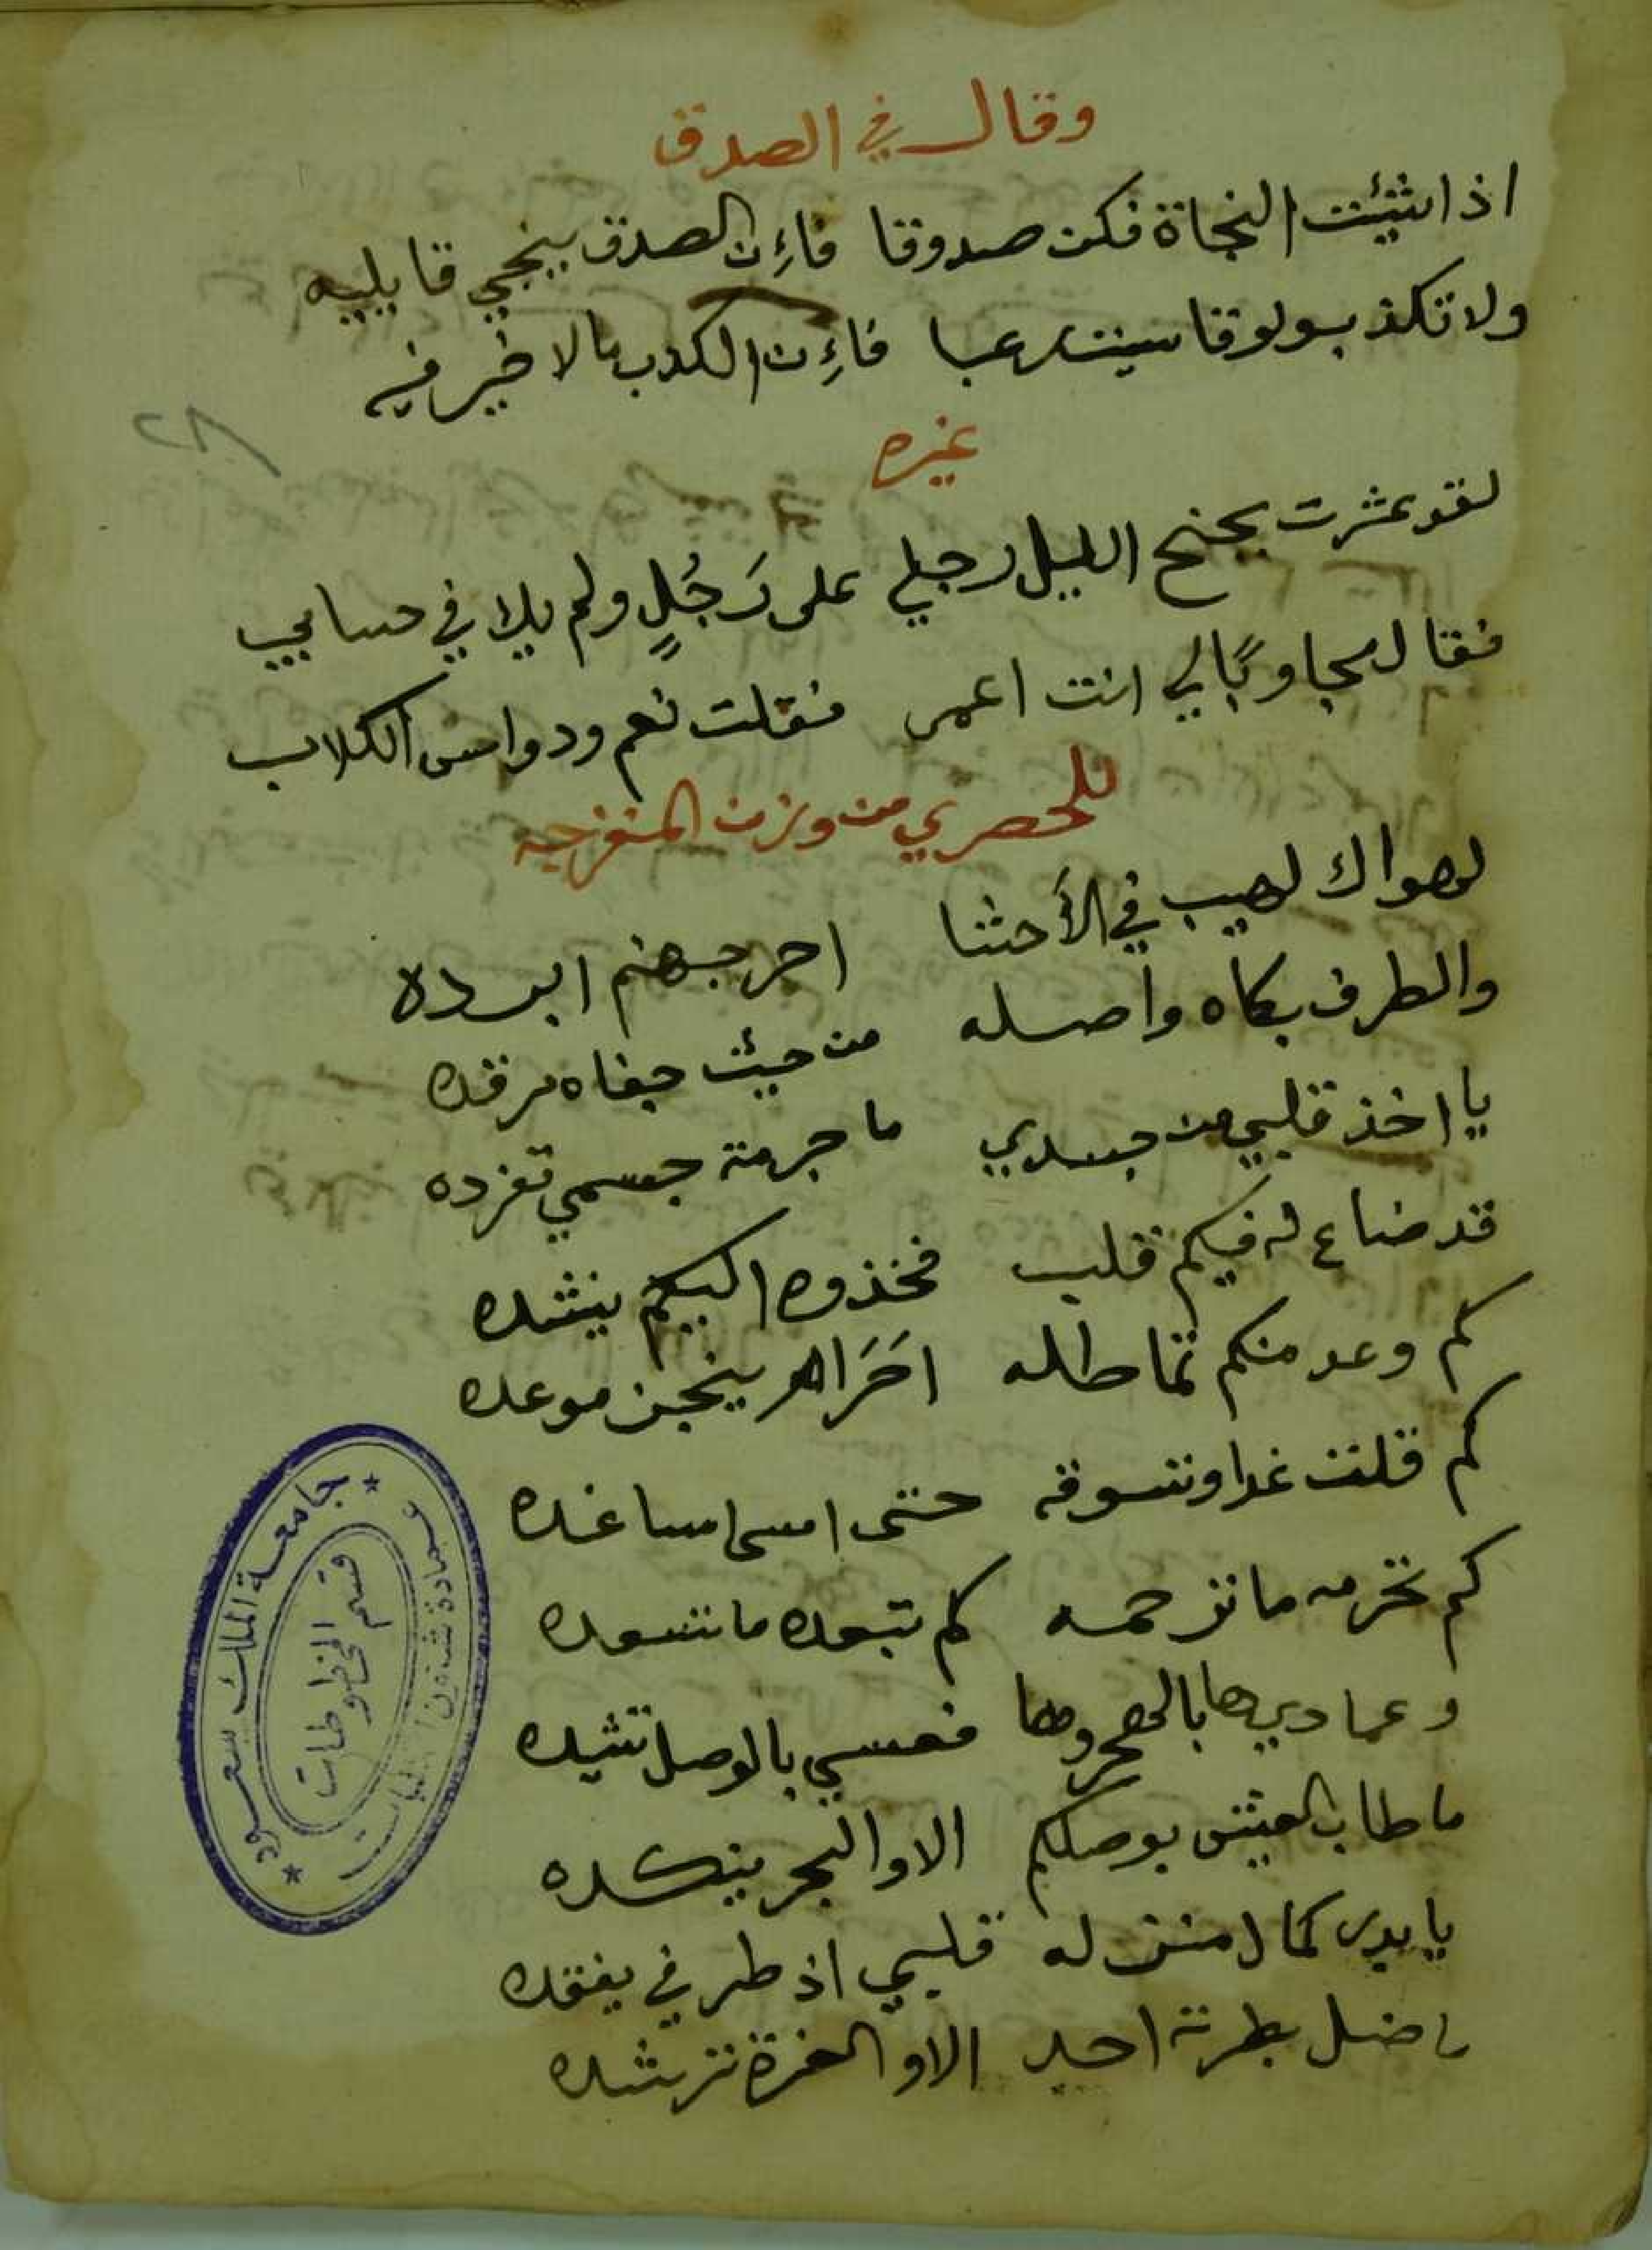 وقال في الصدق
اذا شئت النجاة فكن صدوقا فاءِن الصدق ينجي قايليه
ولا تكذب ولو قاسيت رعبا فاءِن الكدب بالا خير فيه
غيره
لقد عثرت بجنح الليل رجلي على رَجُلٍ ولم يلا في حسابي
فقال مجاوبًا لي انت اعمى فقلت نعم ودواس الكلاب
للحصري من وزن المنفرجه
لهواك لهيب في الأحشا احر جهنم ابرده
والطرف بكاه واصله من حيث جفاه مرقده
يا اخذ قلبي من جسدي ما جرمة جسمي تفرده
قد ضاع له فيكم قلب فخذوه اليكم ينشده
كم وعد منكم تماطله اتَرَاه ينجز موعده
كم قلت غدا وتسوفه حتى امسى اسا غده
كم تحرمه ما ترحمه كم تبعده ما تسعده
وعمادي بالهجر وها فعسى بالوصل تشيده
ما طاب العيش بوصلكم الا والهجر ينكده
يا بدر كمال منزله قلبي اذ طرفي يفقده
ما ضل بطرته احد الا والغرة ترشده
٢٨
جامعة الملك سعود
عمادة شئون المكتبات
قسم المخطوطات